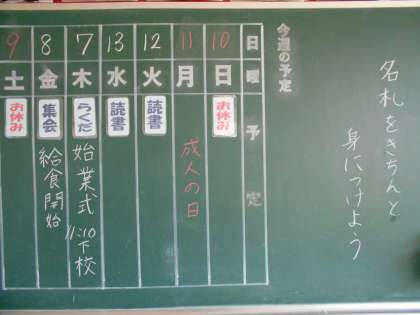 名札をきちんと
身につけよう
今週の予定
日 10 11 12 13 7 8 9
曜 日 月 火 水 木 金 土
予定
お休み
成人の日
読書
読書
らくだ
始業式
11:10下校
集会
給食開始
お休み